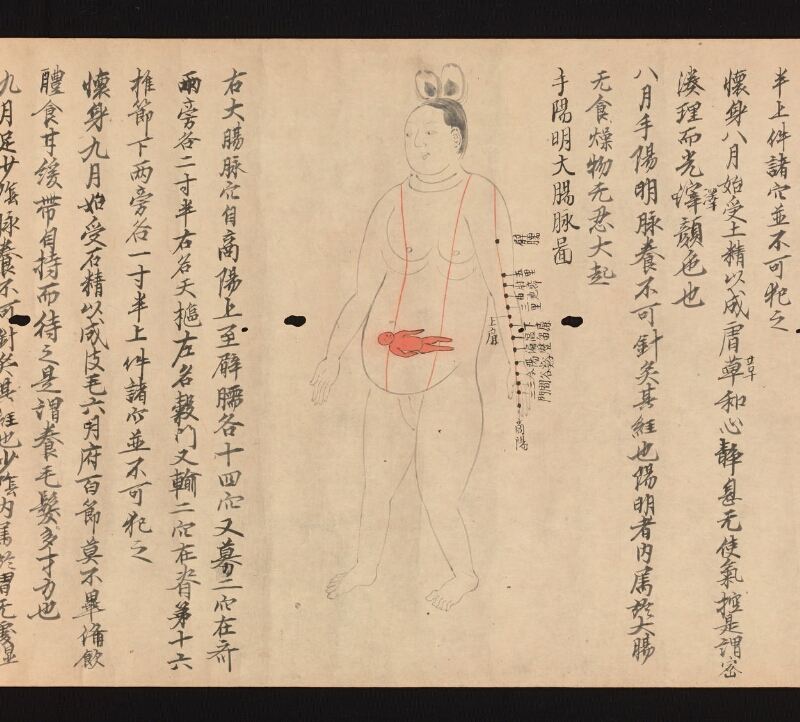 半上件諸穴並不可犯之
懷身八月始受土精以成膚革和心靜息无使氣控是謂密
湊理而光澤顏色也
八月手陽明脉養不可針灸其經也陽明者内属於大腸
无食燥物无忍大起
手陽明大腸脉啚
臂臑
上廉
商陽
右大腸脉穴自商陽上至臂臑各十四穴又募二穴在齐
兩旁各二寸半右名天樞左名穀門又輸二穴在脊第十六
椎節下兩旁各一寸半上件諸穴並不可犯之
懷身九月始受石精以成皮毛六府百節莫不畢俻飲
醴食甘緩帶自持而待之是謂養毛髮多才力也
九月足少陰脉養不可針灸其經也少陰内属於胃无處湿